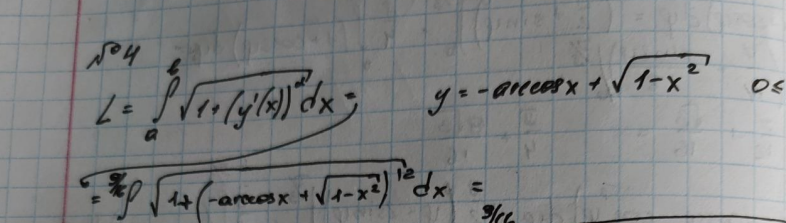 №4
L = ∫_a^b √(1+(y'(x))²) dx =
y = -arccosx + √(1-x²) 0≤
= ∫_0^{9/16} √(1+(-arccosx + √(1-x²))'²) dx =
9/16